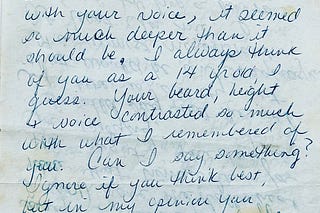 with your voice, it seemed
so much deeper than it
should be. I always think
of you as a 14 yr old, I
guess. Your beard, height
& voice contrasted so much
with what I remembered of
you. Can I say something?
Ignore if you think best,
but in my opinion you